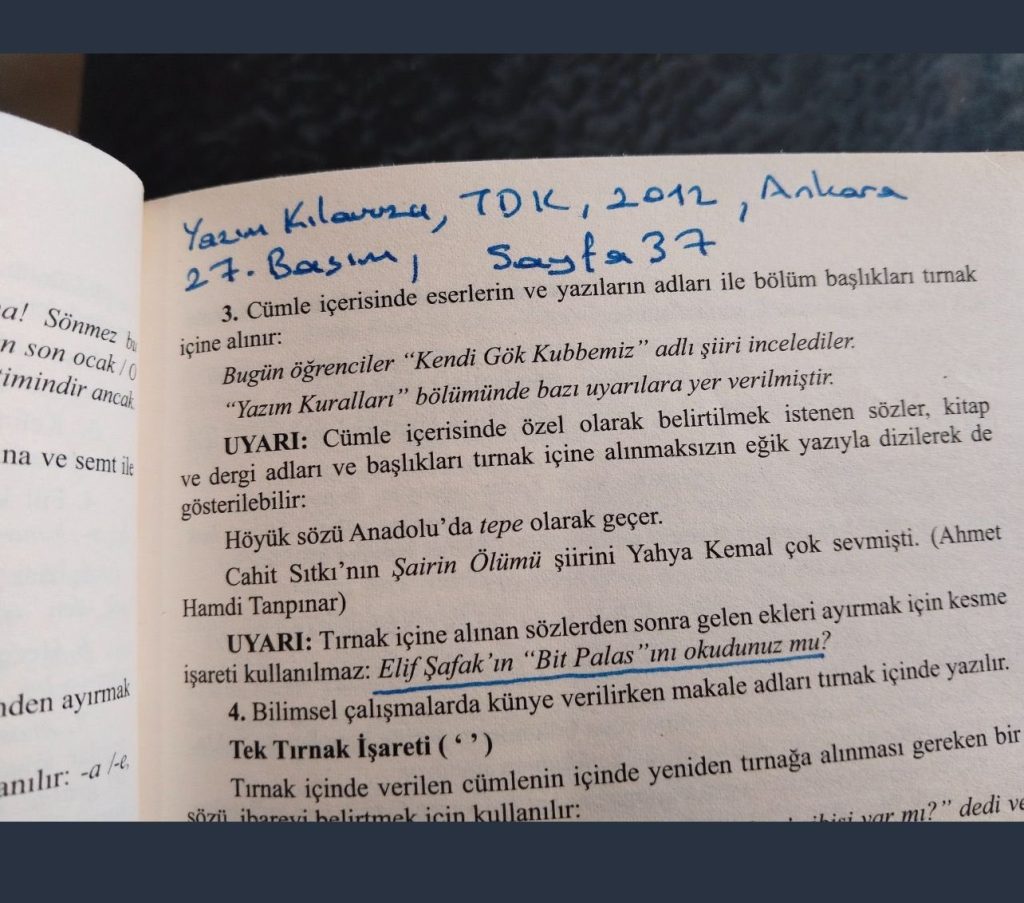 a! Sönmez bu
n son ocak / O
timindir ancak
na ve semt ile
nden ayırmak
anılır: -a /-e,
Yazım Kılavuzu, TDK, 2012, Ankara
27. Basım, Sayfa 37
3. Cümle içerisinde eserlerin ve yazıların adları ile bölüm başlıkları tırnak
içine alınır:
Bugün öğrenciler “Kendi Gök Kubbemiz” adlı şiiri incelediler.
“Yazım Kuralları” bölümünde bazı uyarılara yer verilmiştir.
UYARI: Cümle içerisinde özel olarak belirtilmek istenen sözler, kitap
ve dergi adları ve başlıkları tırnak içine alınmaksızın eğik yazıyla dizilerek de
gösterilebilir:
Höyük sözü Anadolu’da tepe olarak geçer.
Cahit Sıtkı’nın Şairin Ölümü şiirini Yahya Kemal çok sevmişti. (Ahmet
Hamdi Tanpınar)
UYARI: Tırnak içine alınan sözlerden sonra gelen ekleri ayırmak için kesme
işareti kullanılmaz: Elif Şafak’ın “Bit Palas”ını okudunuz mu?
4. Bilimsel çalışmalarda künye verilirken makale adları tırnak içinde yazılır.
Tek Tırnak İşareti ( ‘ ’ )
Tırnak içinde verilen cümlenin içinde yeniden tırnağa alınması gereken bir
sözü, ibareyi belirtmek için kullanılır:
var mı?” dedi ve